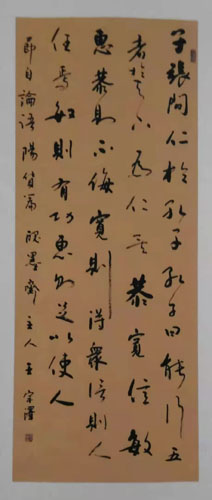 子張問仁於孔子孔子曰能行五
者於天下為仁矣恭寬信敏
惠恭則不侮寬則得眾信則人
任焉敏則有功惠則足以使人
節自論語陽貨篇墨齋主人王宗